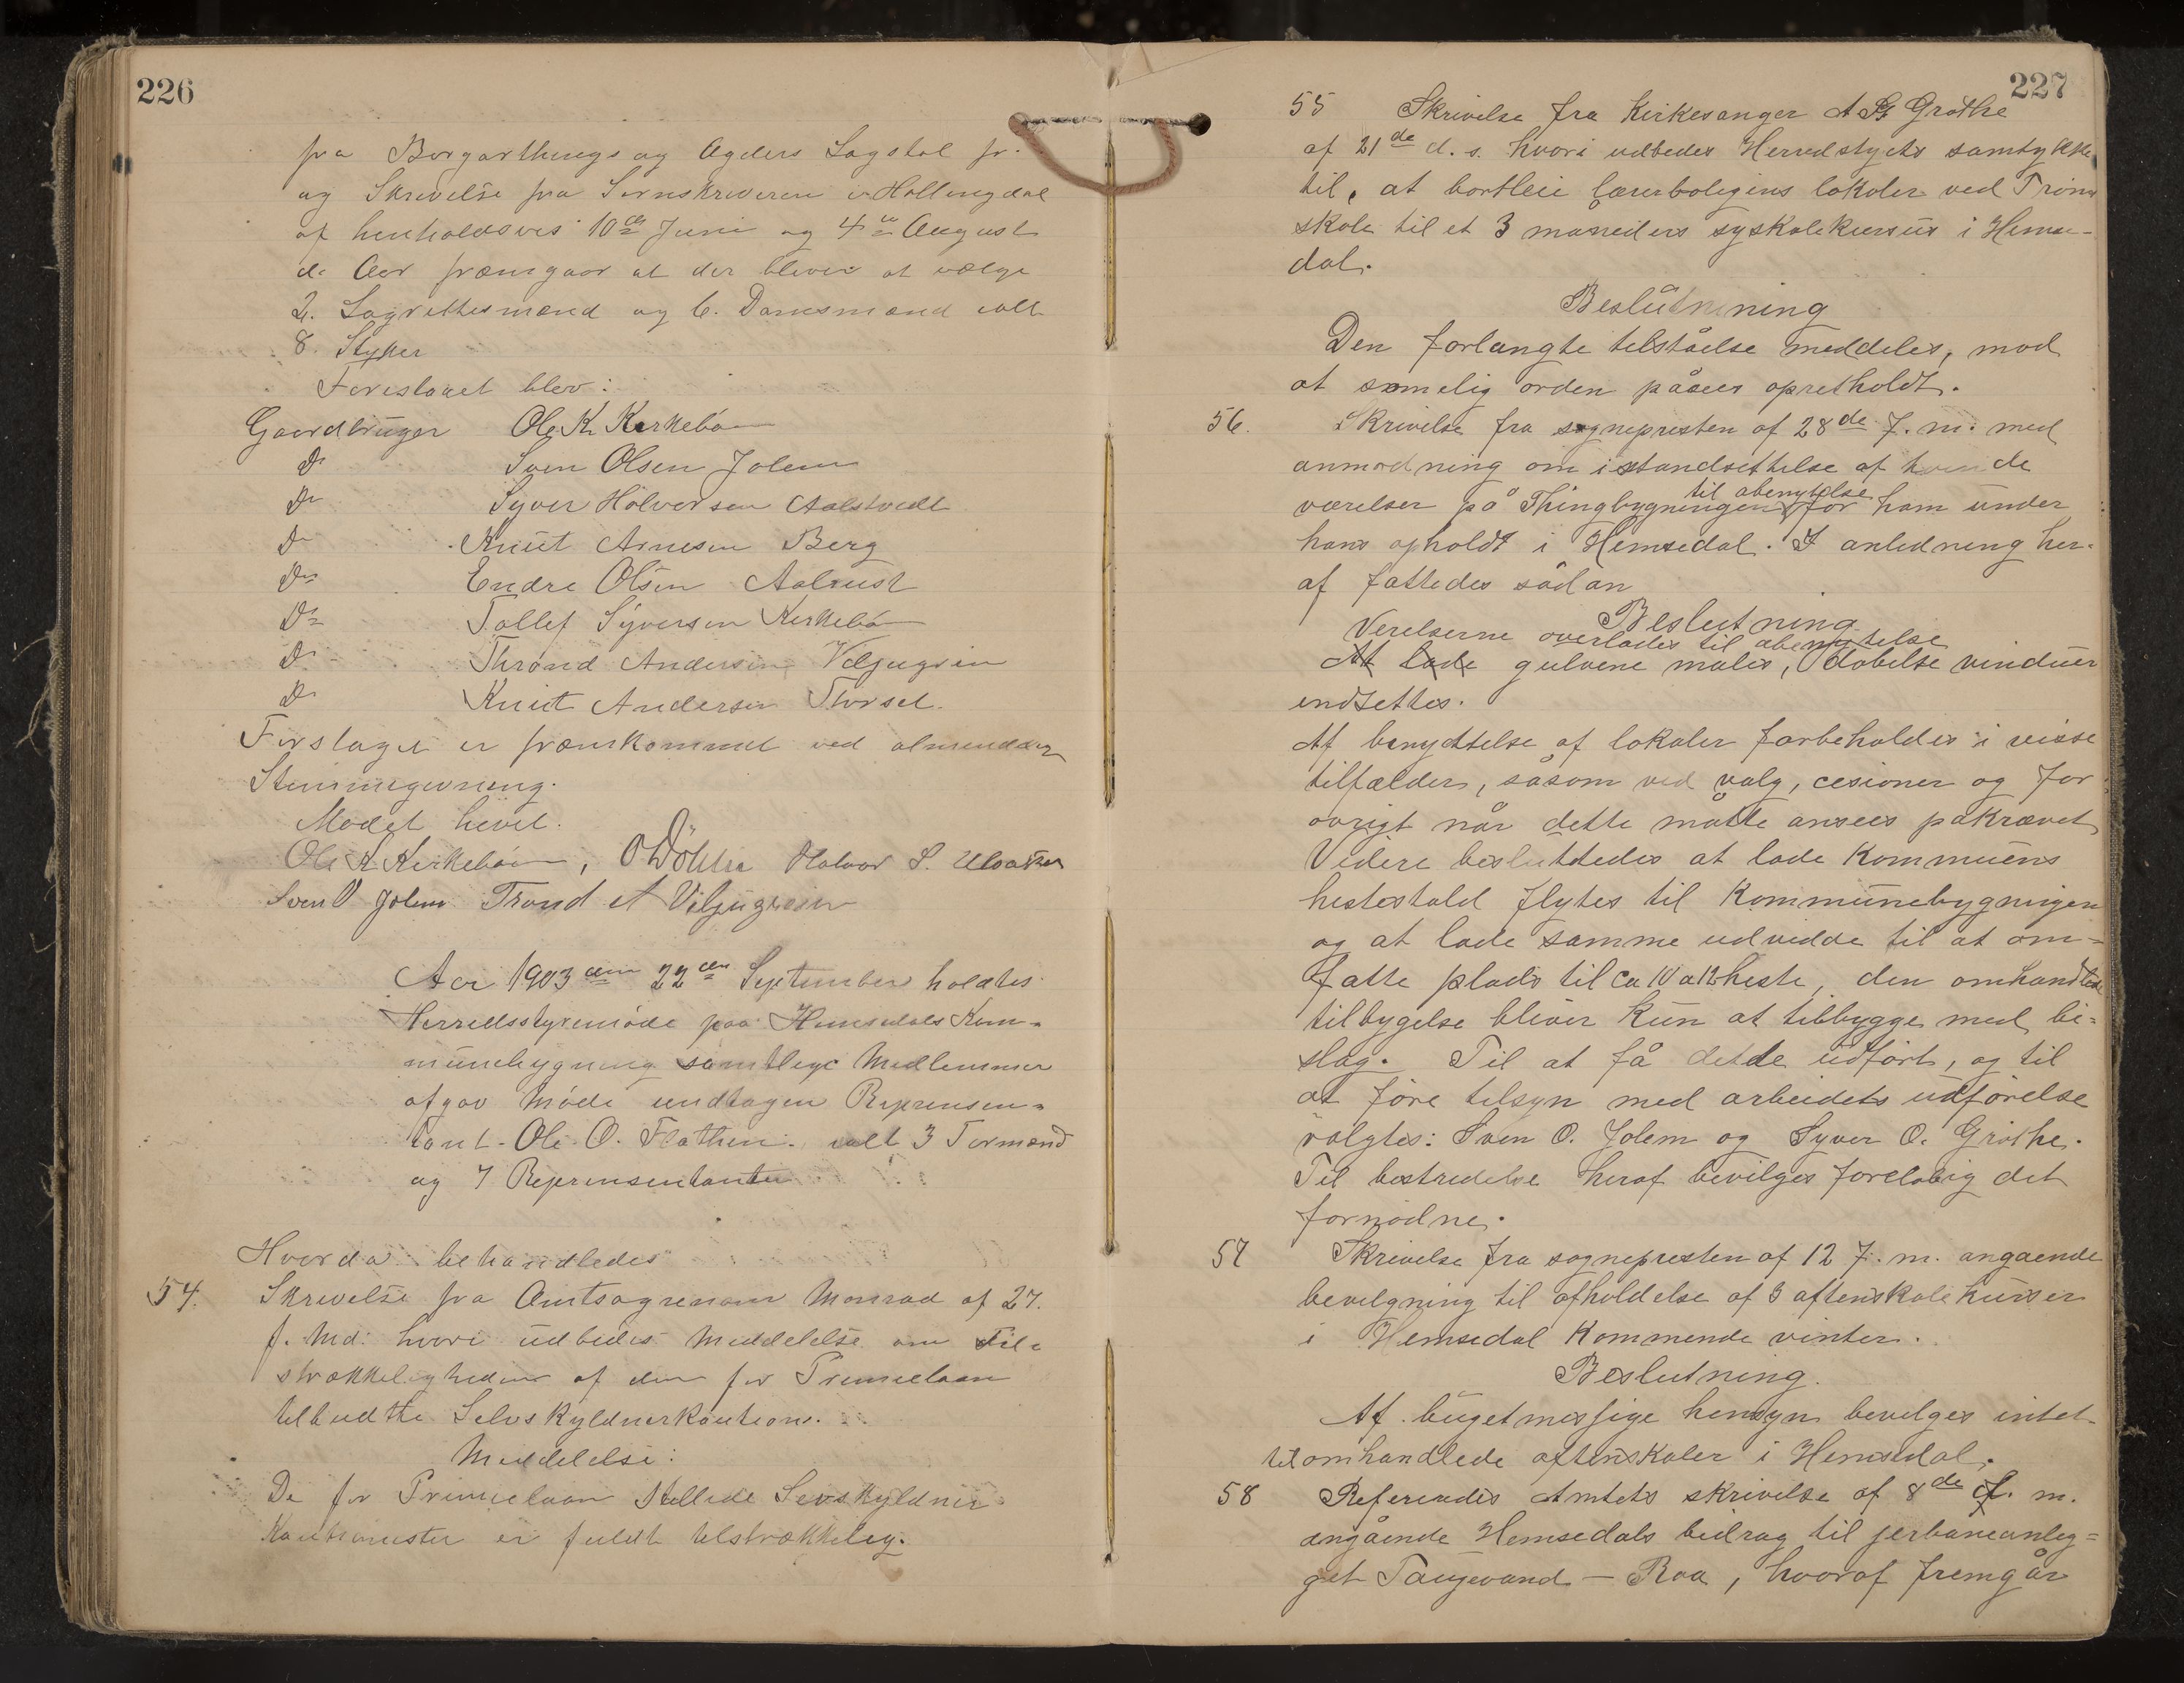 226
fra Borgarthings og Agders Lagstol fr.
og Skrivelse fra Sorenskriveren i Hallingdal
af henholdsvis 10de Juni og 4de August
d. Aar fræmgaar at der bliver at vælge
2. Lagrettesmænd og 6. Domsmænd ialt
8. Styker
Foreslaaet blev:
Gaardbruger Ole K. Kirkebøen
Do Sven Olsen Jolem
Do Syver Halvorsen
Do Knut Arnesen Berg
Do Endre Olsen Aalrust
Do Tollef Syversen Kirkebøen
Do Thrond Andersen Viljugrein
Do Knut Andersen Thorset.
Forslaget er fræmkommet ved almindelig
Stemmegivning.
Mødet hevet.
Ole K. Kirkebøen, Halvor S. Ulsaker
Sven O Jolem Trond A Viljugrein
Aar 1903 den 22de September holdtes
Herredsstyremøde paa Hemsedals Kom-
munebygning samtlige Medlemmer
afgav Møde undtagen Reprensen-
tant Ole O. Flathen. ialt 3 Formænd
og 7 Reprensentanter
Hvorda behandledes
54. Skrivelse fra Amtsagronom Monrad af 27.
f. Md. hvori udbedes Meddelelse om Til-
strækkeligheden af den for Premielaan
tilbudte Selvskyldnerkaution.
Meddelelse:
De for Premielaan stillede Selvskyldner
Kautionister er fuldt tilstrækkelig.
227
55 Skrivelse fra Kirkesanger A G Grøthe
af 21de d. s. hvori udbedes Herredstyrets samtykke
til, at bortleie lærerboligens lokaler ved Trøim
skole til et 3 måneders syskolekursus i Hemse-
dal.
Beslutning
Den forlangte tilståelse meddeles, mod
at sømelig orden påsees opretholdt.
56. Skrivelse fra sognepresten af 28de f. m. med
anmodning om istandsettelse af tvende
til abenytelse
værelser på Thingbygningen for ham under
hans opholdt i Hemsedal. I anledning her-
af fattedes sådan
Beslutning
Verelserne overlades til abenytelse
At lade gulvene males, dobelte vinduer
endsettes.
Af benyttelse af lokaler forbeholdes i visse
tilfælder, såsom ved valg, cesioner og for
øvrigt når dette måtte ansees påkrævet
Videre besluttedes at lade Kommunens
hestestald flytes til Kommunebygningen
og at lade samme udvidde til at om-
fatte plads til ca 10 a 12 heste, den omhandlede
tilbygelse bliver kun at tilbygge med bi-
slag. Til at få dette udført, og til
at føre tilsyn med arbeidets udførelse
valgtes: Sven O. Jolem og Syver O. Grøthe.
Til bestridelse heraf bevilges foreløbig det
fornødne.
57 Skrivelse fra sognepresten af 12 f. m. angaende
bevilgning til afholdelse af 3 aftenskole kurser
i Hemsedal kommende vinter.
Beslutning.
Af bugetmessige hensyn bevilges intet
til omhandlede aftenskoler i Hemsedal.
58 Refereredes Amtets skrivelse af 8de f. m.
angående Hemsedals bidrag til jerbaneanleg-
get Taugevand — Roa, hvoraf fremgår